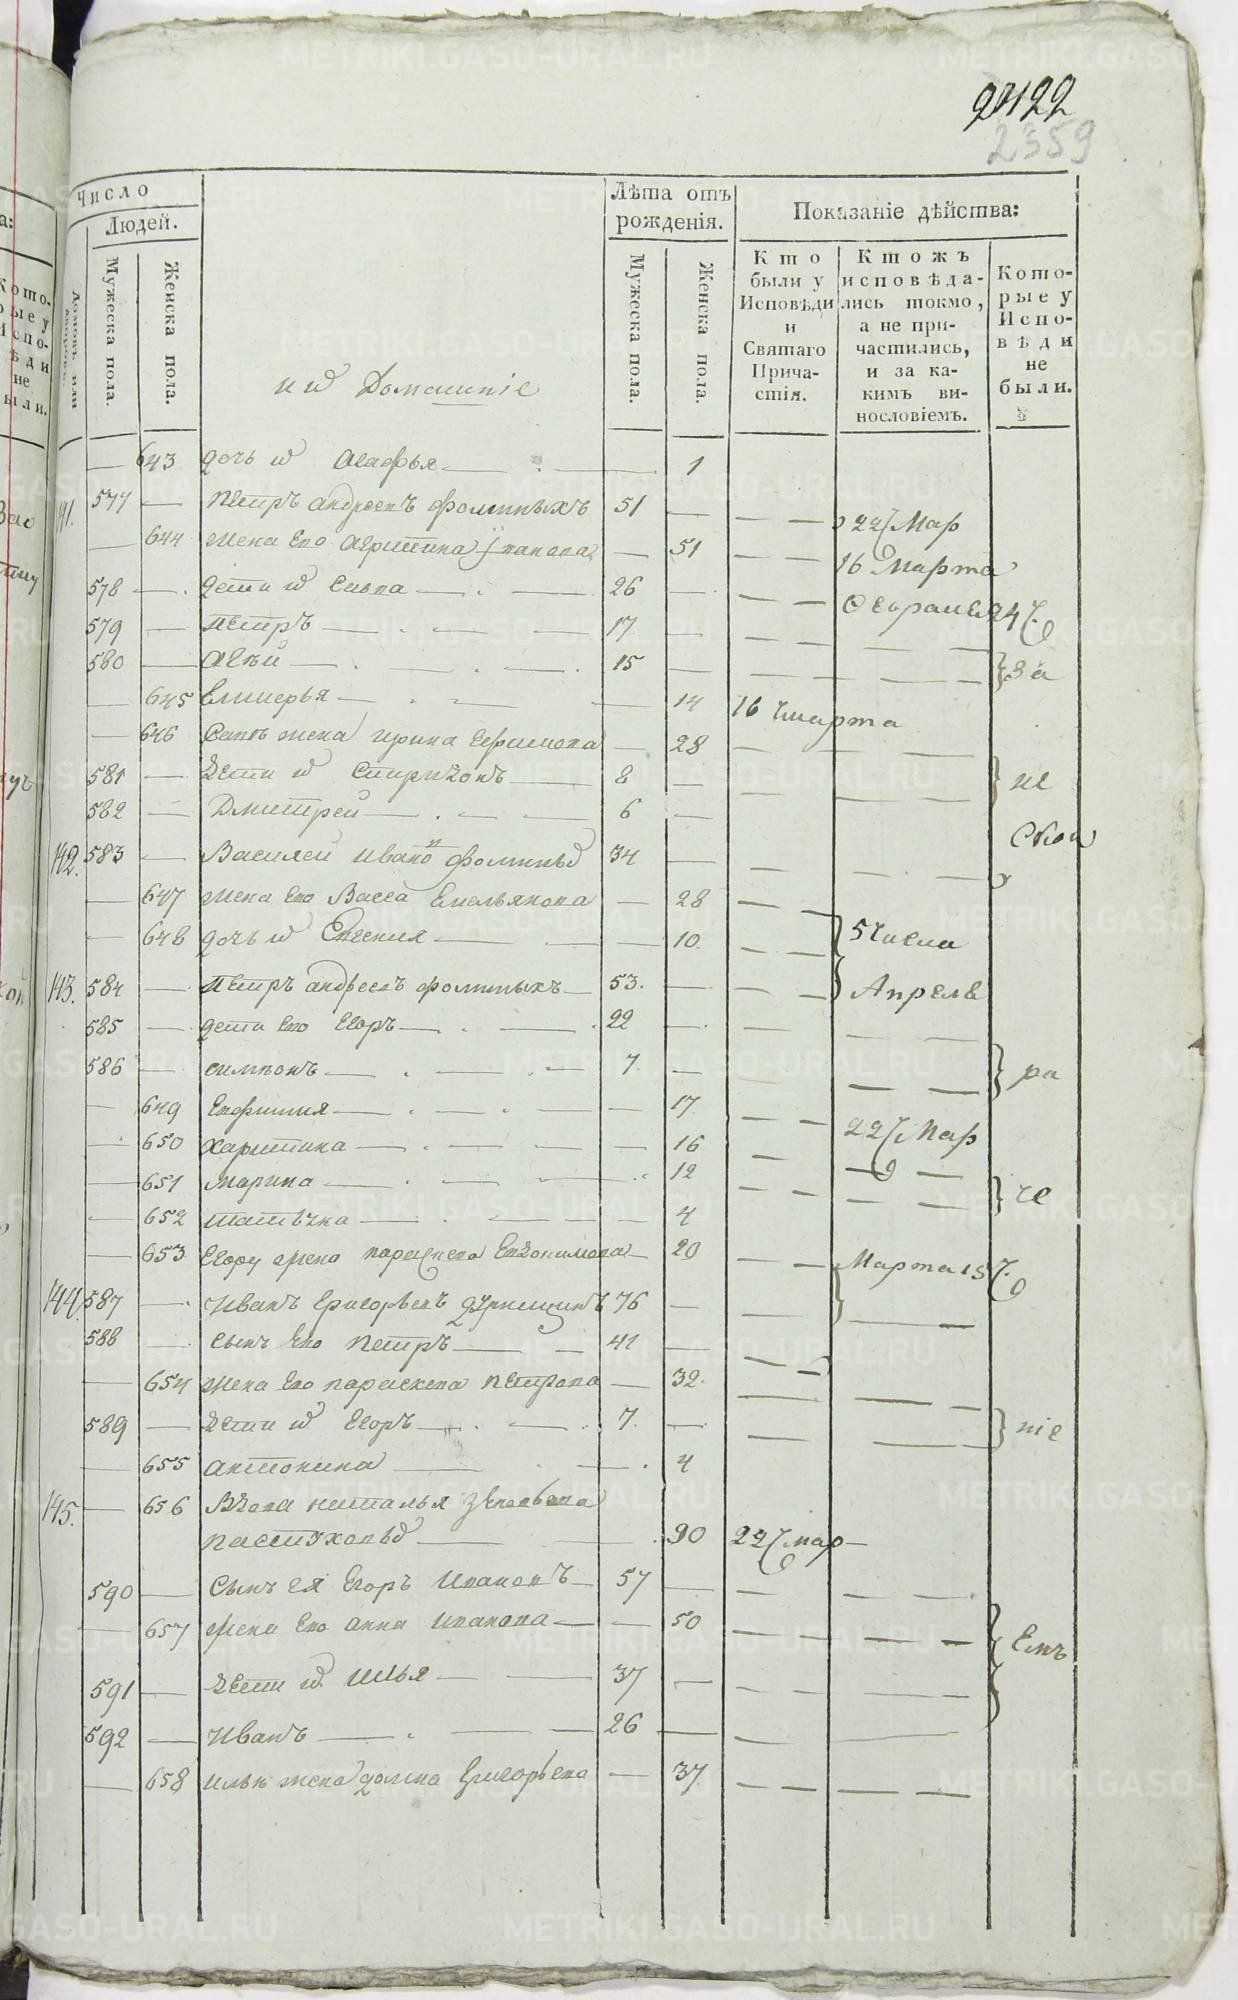 2359
Число
Людей.
Мужеска пола.
Женска пола.
Лѣта отъ рожденія.
Мужеска пола.
Женска пола.
Показаніе дѣйства:
Кто были у Исповѣди и Святаго Причастія.
Ктожъ исповѣдались токмо, а не причастились, и за какимъ винословіемъ.
Которые у Исповѣди не были.
и ихъ Домашніе
643 дочь ихъ Агафья 1
141. 577 Петръ андреевъ фоминыхъ 51 22 Мар
644 жена Его Агрипина 51 16 Марта
578 дети ихъ Савва 26 24
579 Петръ 17
580 15 За
645 14 16 марта
646 жена ирина Ефимова 28
581 Дети ихъ Спиридонъ 8 не
582 Дмитрей 6
142. 583 Василей Ивановъ фоминыхъ 34
647 жена Его Васса Емельянова 28
648 дочь ихъ Евгения 10 5 Числа
143. 584 Петръ андреевъ фоминыхъ 53 Апреля
585 дети Его Егоръ 22
586 симионъ 7 ра
649 17
650 Харитина 16 22 Мар
651 Марина 12
652 4 че
653 Егору жена параскева Евдокимова 20 Марта 15
144. 587 Иванъ Григорьевъ 76
588 сынъ Его Петръ 41
654 жена Его параскева Петрова 32
589 Дети ихъ Егоръ 7 ніе
655 антонина 4
145. 656 Вдова наталья
Пастухова 90 22 мар
590 Сынъ ея Егоръ Ивановъ 57
657 жена Его анна Иванова 50 Емъ
591 Дети ихъ Илья 37
592 Иванъ 26
658 ильи жена домна Григорьева 37